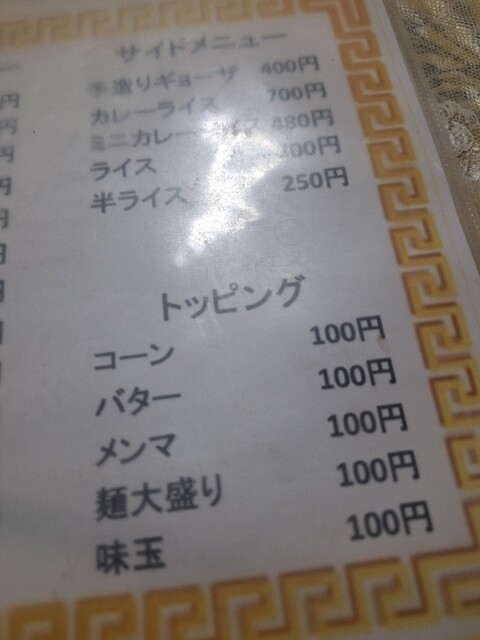 サイドメニュー
手造りギョーザ 400円
カレーライス 700円
ミニカレーライス 480円
ライス 00円
半ライス 250円
トッピング
コーン 100円
バター 100円
メンマ 100円
麺大盛り 100円
味玉 100円